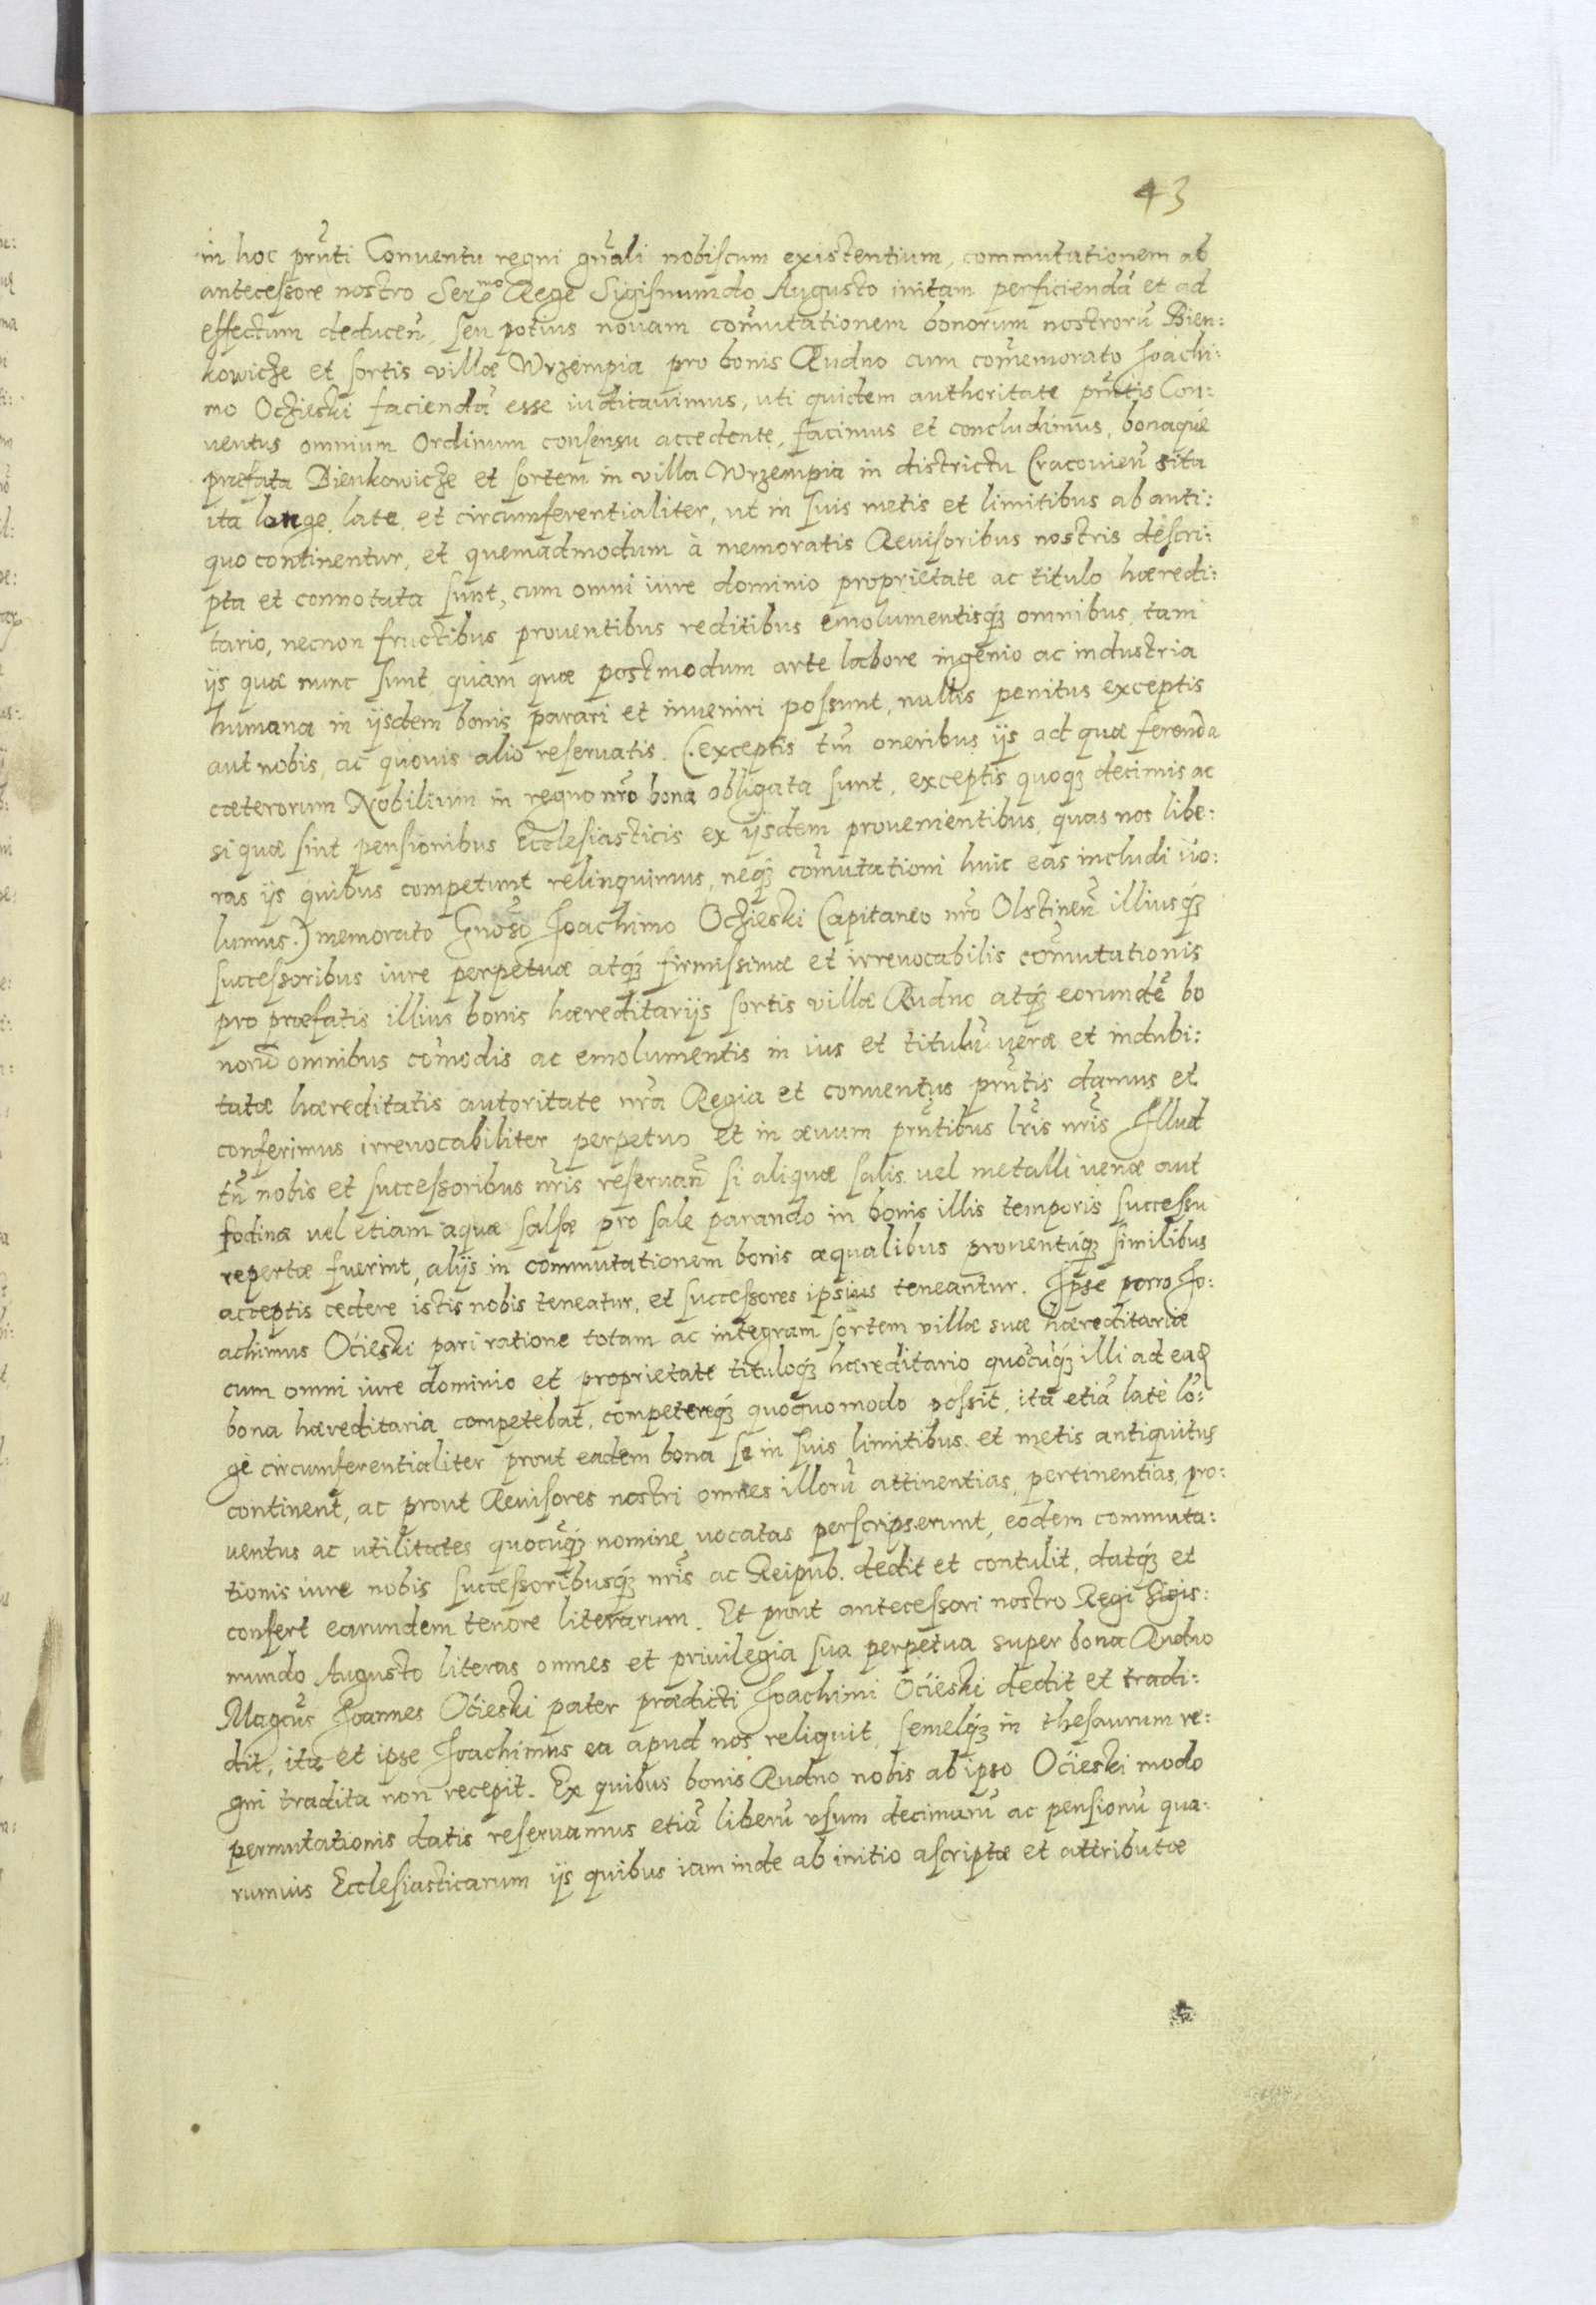 43
in hoc prn̄ti Conventu regni gn̄ali nobiscum existentium, commutationem ab
antecessore nostro Ser.mo Rege Sigismundo Augusto initam perficiendā et ad
effectum deducen̄, seu potius novam com̄utationem bonorum nostrorū Bien:
kowicze et sortis villæ Wrzempia pro bonis Rudno cum com̄emorato Joachi:
mo Oczieski faciendā esse iudicavimus, uti quidem authoritate prn̄tis Con:
ventus omnium Ordinum consensu accedente, facimus et concludimus, bonaque
præfata Bienkowicze et sortem in villa Wrzempia in districtu Cracovien̄ sita
ita longe, late, et circumferentialiter, ut in suis metis et limitibus ab anti:
quo continentur, et quemadmodum à memoratis Revisoribus nostris descri:
pta et connotata sunt, cum omni iure dominio proprietate ac titulo hæredi:
tario, necnon fructibus proventibus reditibus emolumentisq́ꝫ omnibus, tam
ijs quæ nunc sunt, quàm quæ postmodum arte labore ingenio ac industria
humana in ijsdem bonis parari et inveniri possunt, nullis penitus exceptis
aut nobis, ac quovis alio reservatis. (.exceptis tm̄ oneribus ijs ad quæ ferenda
cæterorum Nobilium in regno nr̄o bona obligata sunt, exceptis quoqꝫ decimis ac
si quæ sint pensionibus Ecclesiasticis ex ijsdem provenientibus, quas nos libe:
ras ijs quibus competunt relinquimus, neqꝫ com̄utationi huic eas includi vo:
lumus.) memorato Gnōso Joachimo Oczieski Capitaneo nr̄o Olstinen̄ illiusq́ꝫ
successoribus iure perpetuæ atqꝫ firmissimæ et irrevocabilis com̄utationis
pro præfatis illius bonis hæreditarijs sortis villæ Rudno atqꝫ eorundē bo
norū omnibus com̄odis ac emolumentis in ius et titulū veræ et indubi:
tatæ hæreditatis autoritate nr̄a Regia et conventus prn̄tis damus et
conferimus irrevocabiliter perpetuo et in ævum prn̄tibus lr̄is nr̄is Illud
tn̄ nobis et successoribus nr̄is reservan̄ si aliquæ salis vel metalli venæ aut
fodinæ vel etiam aquæ salsæ pro sale parando in bonis illis temporis successu
repertæ fuerint, alijs in commutationem bonis æqualibus proventuq́ꝫ similibus
acceptis cedere istis nobis teneatur, et successores ipsius teneantur. Ipse porro Jo:
achimus Ocieski pari ratione totam ac integram sortem villæ suæ hæreditariæ
cum omni iure dominio et proprietate tituloq́ꝫ hæreditario quocūqꝫ illi ad ea
bona hæreditaria competebat, competereq́ꝫ quoquomodo possit, ita etiā latè lō:
gè circumferentialiter prout eadem bona se in suis limitibus et metis antiquitus
continent, ac prout Revisores nostri omnes illorū attinentias, pertinentias, pro:
ventus ac utilitates quocūqꝫ nomine vocatas perscripserunt, eodem commuta:
tionis iure nobis successoribusq́ꝫ nr̄is ac Reipub. dedit et contulit, datq́ꝫ et
confert earundem tenore literarum. Et prout antecessori nostro Regi Sigis:
mundo Augusto literas omnes et privilegia sua perpetua super bona Rudno
Magcūs Joannes Ocieski pater prædicti Joachimi Ocieski dedit et tradi:
dit, ita et ipse Joachimus ea apud nos reliquit, semelq́ꝫ in thesaurum re:
gni tradita non recepit. Ex quibus bonis Rudno nobis ab ipso Ocieski modo
permutationis datis reservamus etiā liberū usum decimarū ac pensionū qua:
rumvis Ecclesiasticarum ijs quibus iam inde ab initio ascriptæ et attributæ